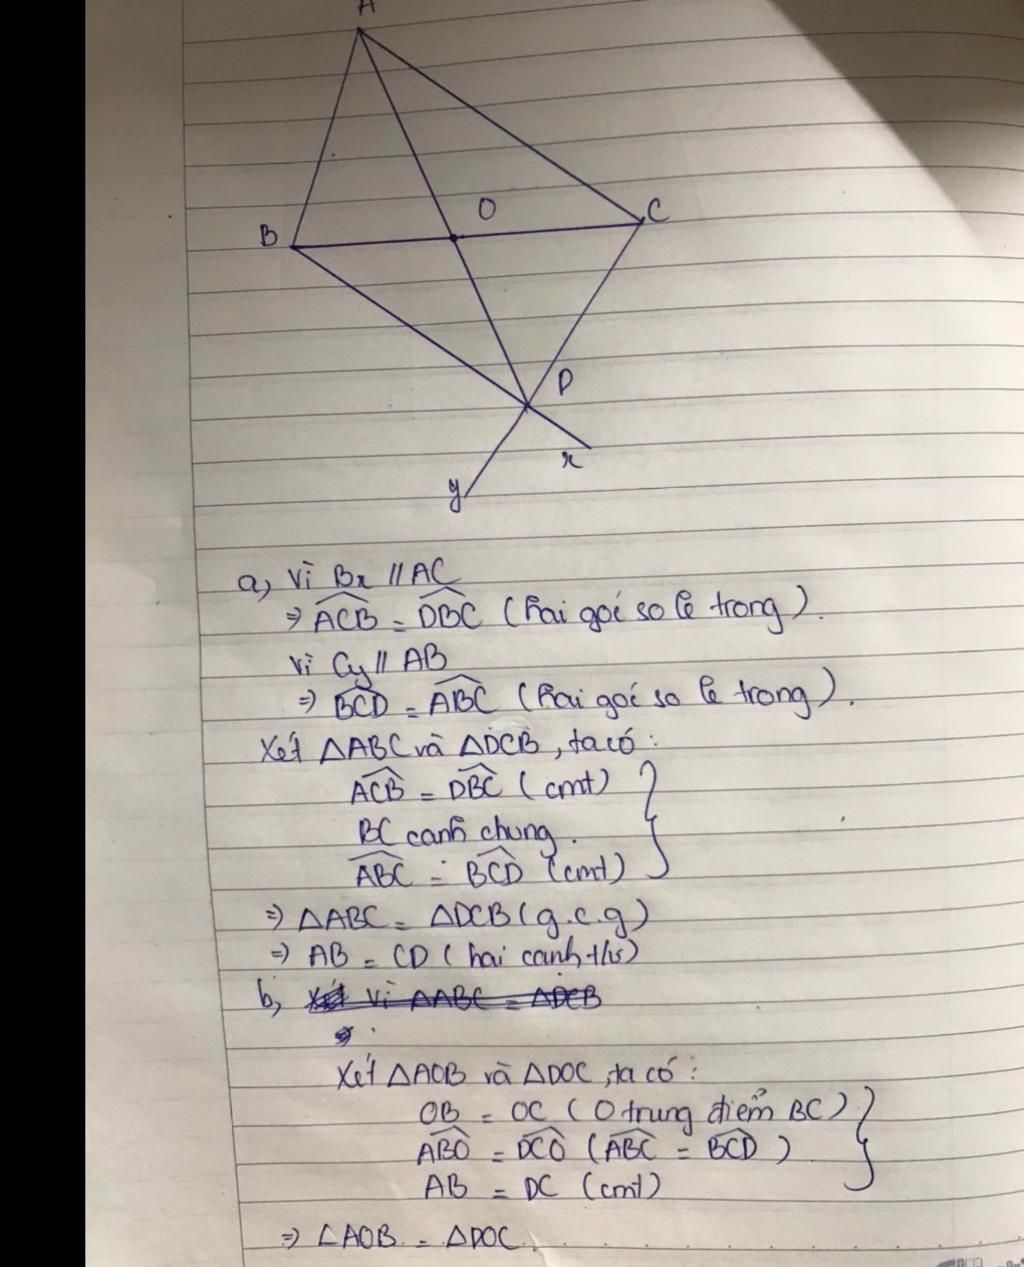 A
O
C
B
D
x
y
a, Vì Bx // AC
⇒ \widehat{ACB} = \widehat{DBC} (hai goć so le trong).
Vì Cy // AB
⇒ \widehat{BCD} = \widehat{ABC} (hai goć so le trong).
Xét ΔABC và ΔDCB, ta có:
\widehat{ACB} = \widehat{DBC} (cmt)
BC canh chung.
\widehat{ABC} = \widehat{BCD} (cmt)
⇒ ΔABC = ΔDCB (g.c.g)
⇒ AB = CD (hai canh t/ư)
b, Xét Vì ΔABC = ΔDCB
Xét ΔAOB và ΔDOC, ta có:
OB = OC (O trung điểm BC)
\widehat{ABO} = \widehat{DCO} (\widehat{ABC} = \widehat{BCD})
AB = DC (cmt)
⇒ ΔAOB = ΔDOC.